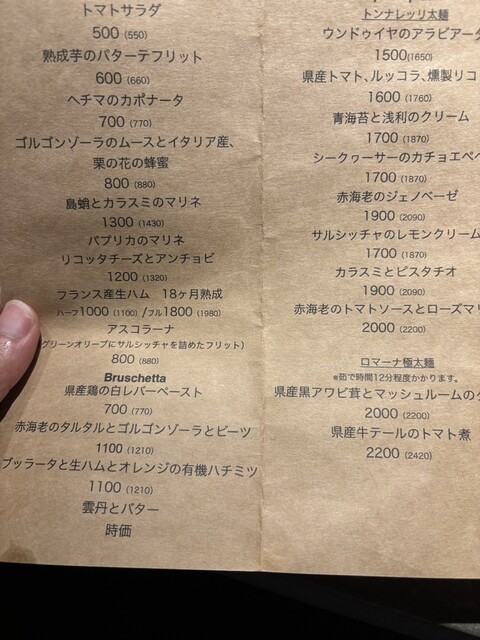 トマトサラダ
500 (550)
熟成芋のバターテフリット
600 (660)
ヘチマのカポナータ
700 (770)
ゴルゴンゾーラのムースとイタリア産、
栗の花の蜂蜜
800 (880)
島蛸とカラスミのマリネ
1300 (1430)
パプリカのマリネ
リコッタチーズとアンチョビ
1200 (1320)
フランス産生ハム　18ヶ月熟成
ハーフ1000 (1100) /フル1800 (1980)
アスコラーナ
グリーンオリーブにサルシッチャを詰めたフリット)
800 (880)
Bruschetta
県産鶏の白レバーペースト
700 (770)
赤海老のタルタルとゴルゴンゾーラとビーツ
1100 (1210)
ブッラータと生ハムとオレンジの有機ハチミツ
1100 (1210)
雲丹とバター
時価
トンナレッリ太麺
ウンドゥイヤのアラビアータ
1500(1650)
県産トマト、ルッコラ、燻製リコ
1600 (1760)
青海苔と浅利のクリーム
1700 (1870)
シークヮーサーのカチョエペペ
1700 (1870)
赤海老のジェノベーゼ
1900 (2090)
サルシッチャのレモンクリーム
1700 (1870)
カラスミとピスタチオ
1900 (2090)
赤海老のトマトソースとローズマリ
2000 (2200)
ロマーナ極太麺
※茹で時間12分程度かかります。
県産黒アワビ茸とマッシュルームの
2000 (2200)
県産牛テールのトマト煮
2200 (2420)